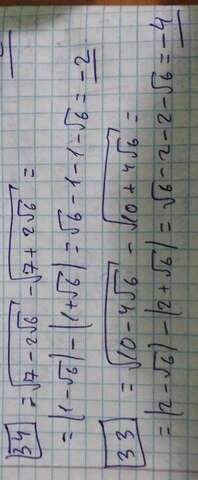 34 = √(7-2√6) - √(7+2√6) =
= |1-√6| - |1+√6| = √6-1-1-√6 = -2
33 = √(10-4√6) - √(10+4√6) =
= |2-√6| - |2+√6| = √6-2-2-√6 = -4